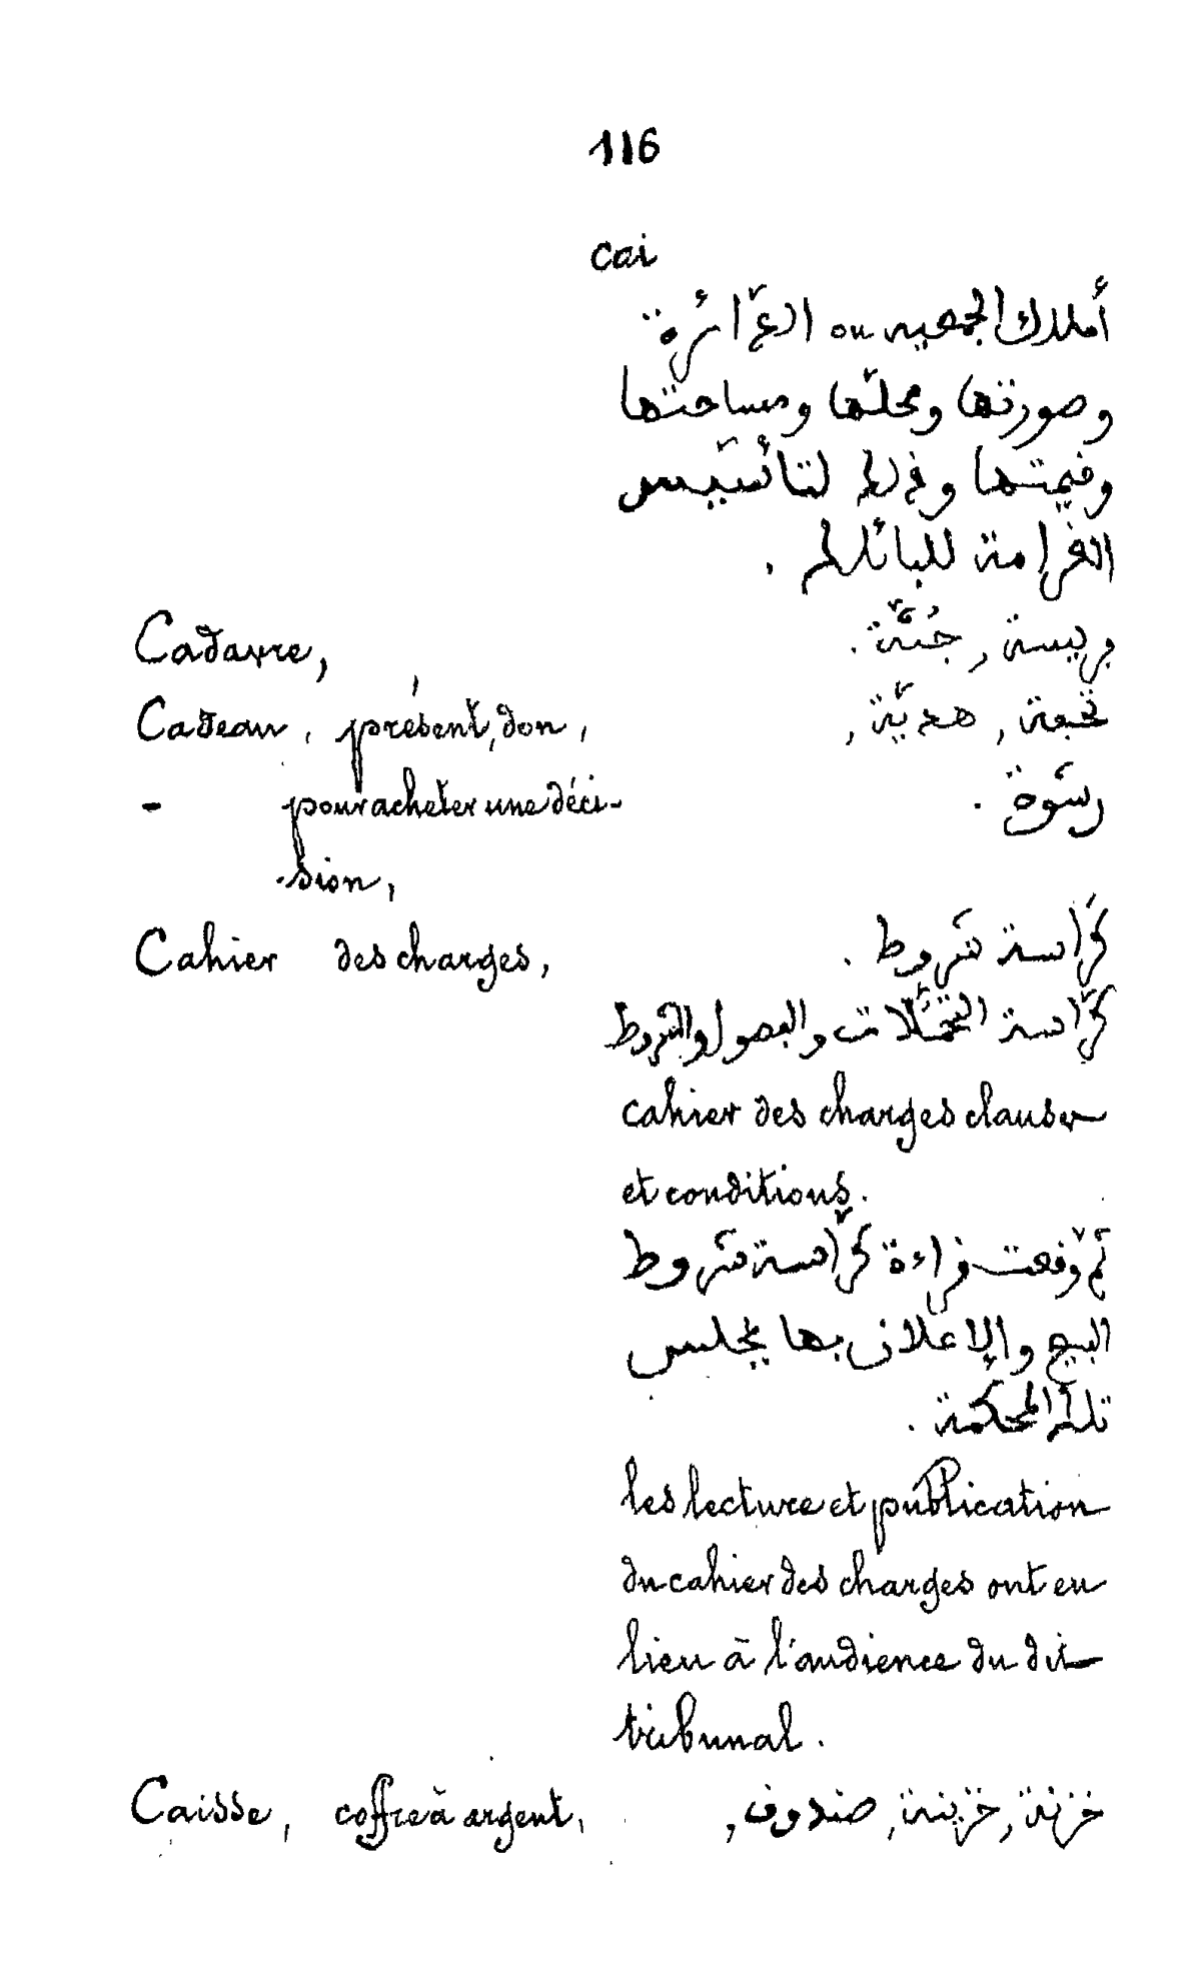 116
cai
أملاك الجمعيه ou الدّائرة
وصورتها ومحلّها ومساحتها
وقيمتها وذلك لتأسّيس
الغرامة للبائلك .
Cadavre, فريسة, جُثّة .
Cadeau, présent, don, تحفة, هديّة,
- pour acheter une déci- رشوة .
-sion,
Cahier des charges, كرّاسة شروط .
كرّاسة التحمّلات والفصول والشروط
cahier des charges clauses
et conditions.
ثمّ وقعت قراءة كرّاسة شروط
البيع والإعلان بها بمجلس
تلك المحكمة .
les lecture et publication
du cahier des charges ont eu
lieu à l'audience du dit
tribunal.
Caisse, coffre à argent, خزنة, خزينة, صندوق,